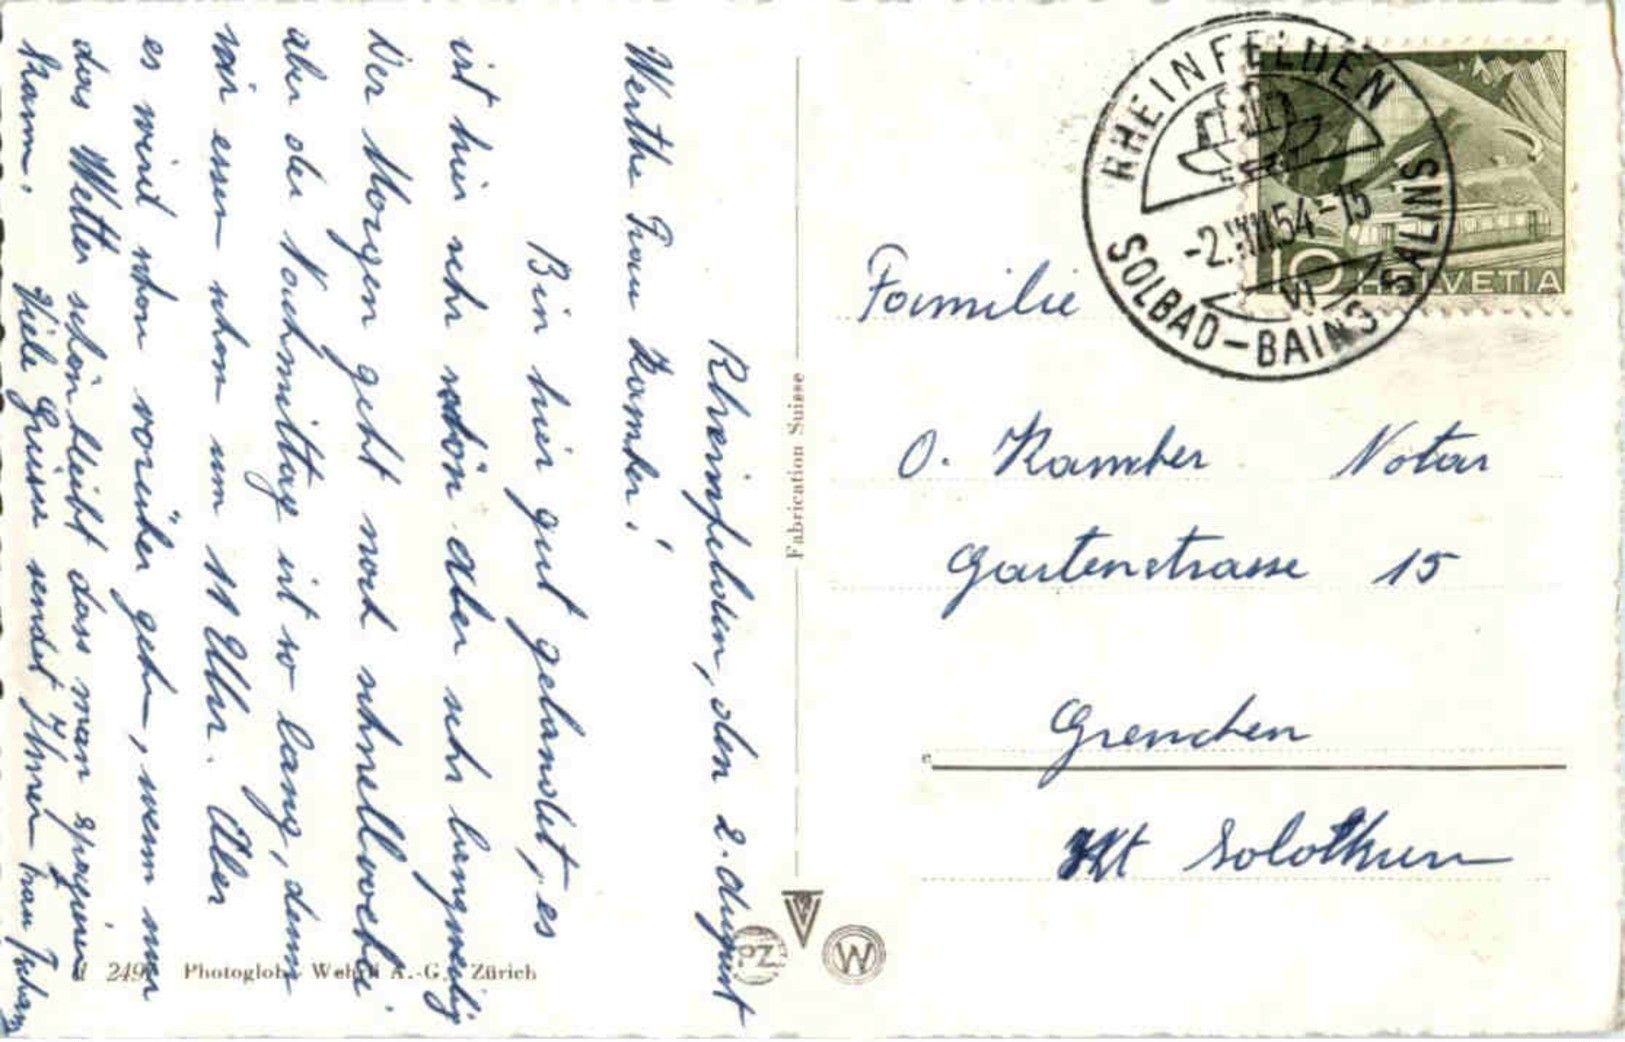 Rheinfelden, den 2. August
Werthe Frau Kamber!
Bin hier gut gelandet, es
ist hier sehr schön aber sehr langweilig
Der Morgen geht noch schnell vorbei
aber der Nachmittag ist so lang, denn
wir essen schon um 11 Uhr. Aber
es wird schon vorüber gehn, wenn nur
das Wetter schön bleibt dass man spazieren
kann. Viele Grüsse sendet Ihnen Frau
249
Photoglob-Wehrli A.-G. Zürich
Fabrication Suisse
PZ
V
W
RHEINFELDEN
-2.VIII.54-15
SOLBAD-BAINS SALINS
10 HELVETIA
Familie
O. Kamber Notar
Gartenstrasse 15
Grenchen
Kt Solothurn